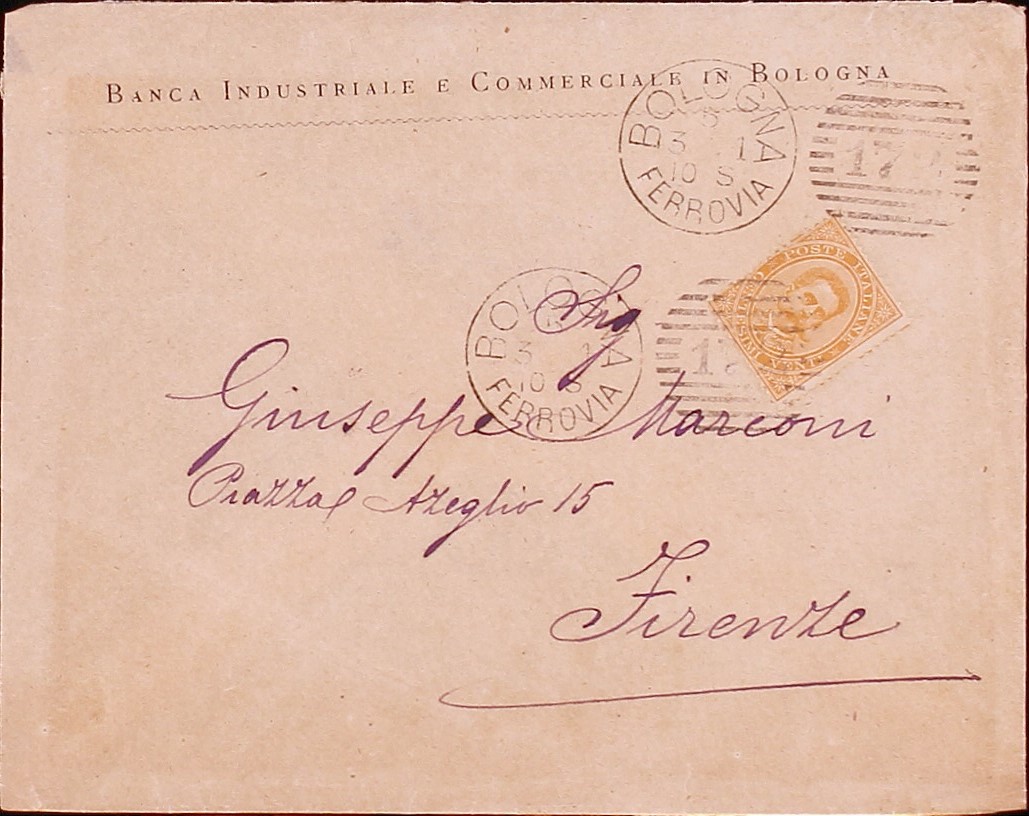 BANCA INDUSTRIALE E COMMERCIALE IN BOLOGNA
BOLOGNA
3 1
10 S
FERROVIA
POSTE ITALIANE
CENT. VENTI
Sig
BOLOGNA
3 1
10 S
FERROVIA
Giuseppe Marconi
Piazza Azeglio 15
Firenze